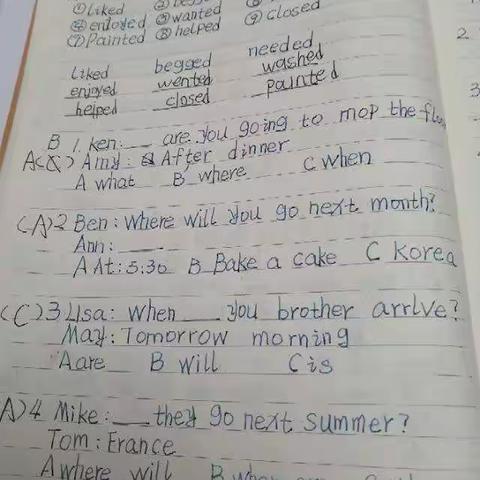 ①liked
④enjoyed ⑤wanted ⑨closed
⑦Painted ⑧helped
liked begged needed
enjoyed wented washed
helped closed painted
B 1. Ken: __ are you going to mop the
A(X) Amy: After dinner
A what B where C when
(A)2 Ben: Where will you go next month?
Ann: __
A At: 5:30 B Bake a cake C Korea
(C)3 Lisa: When __ you brother arrive?
May: Tomorrow morning
A are B will C is
A)4 Mike: __ they go next summer?
Tom: Erance
A where will
2.
3